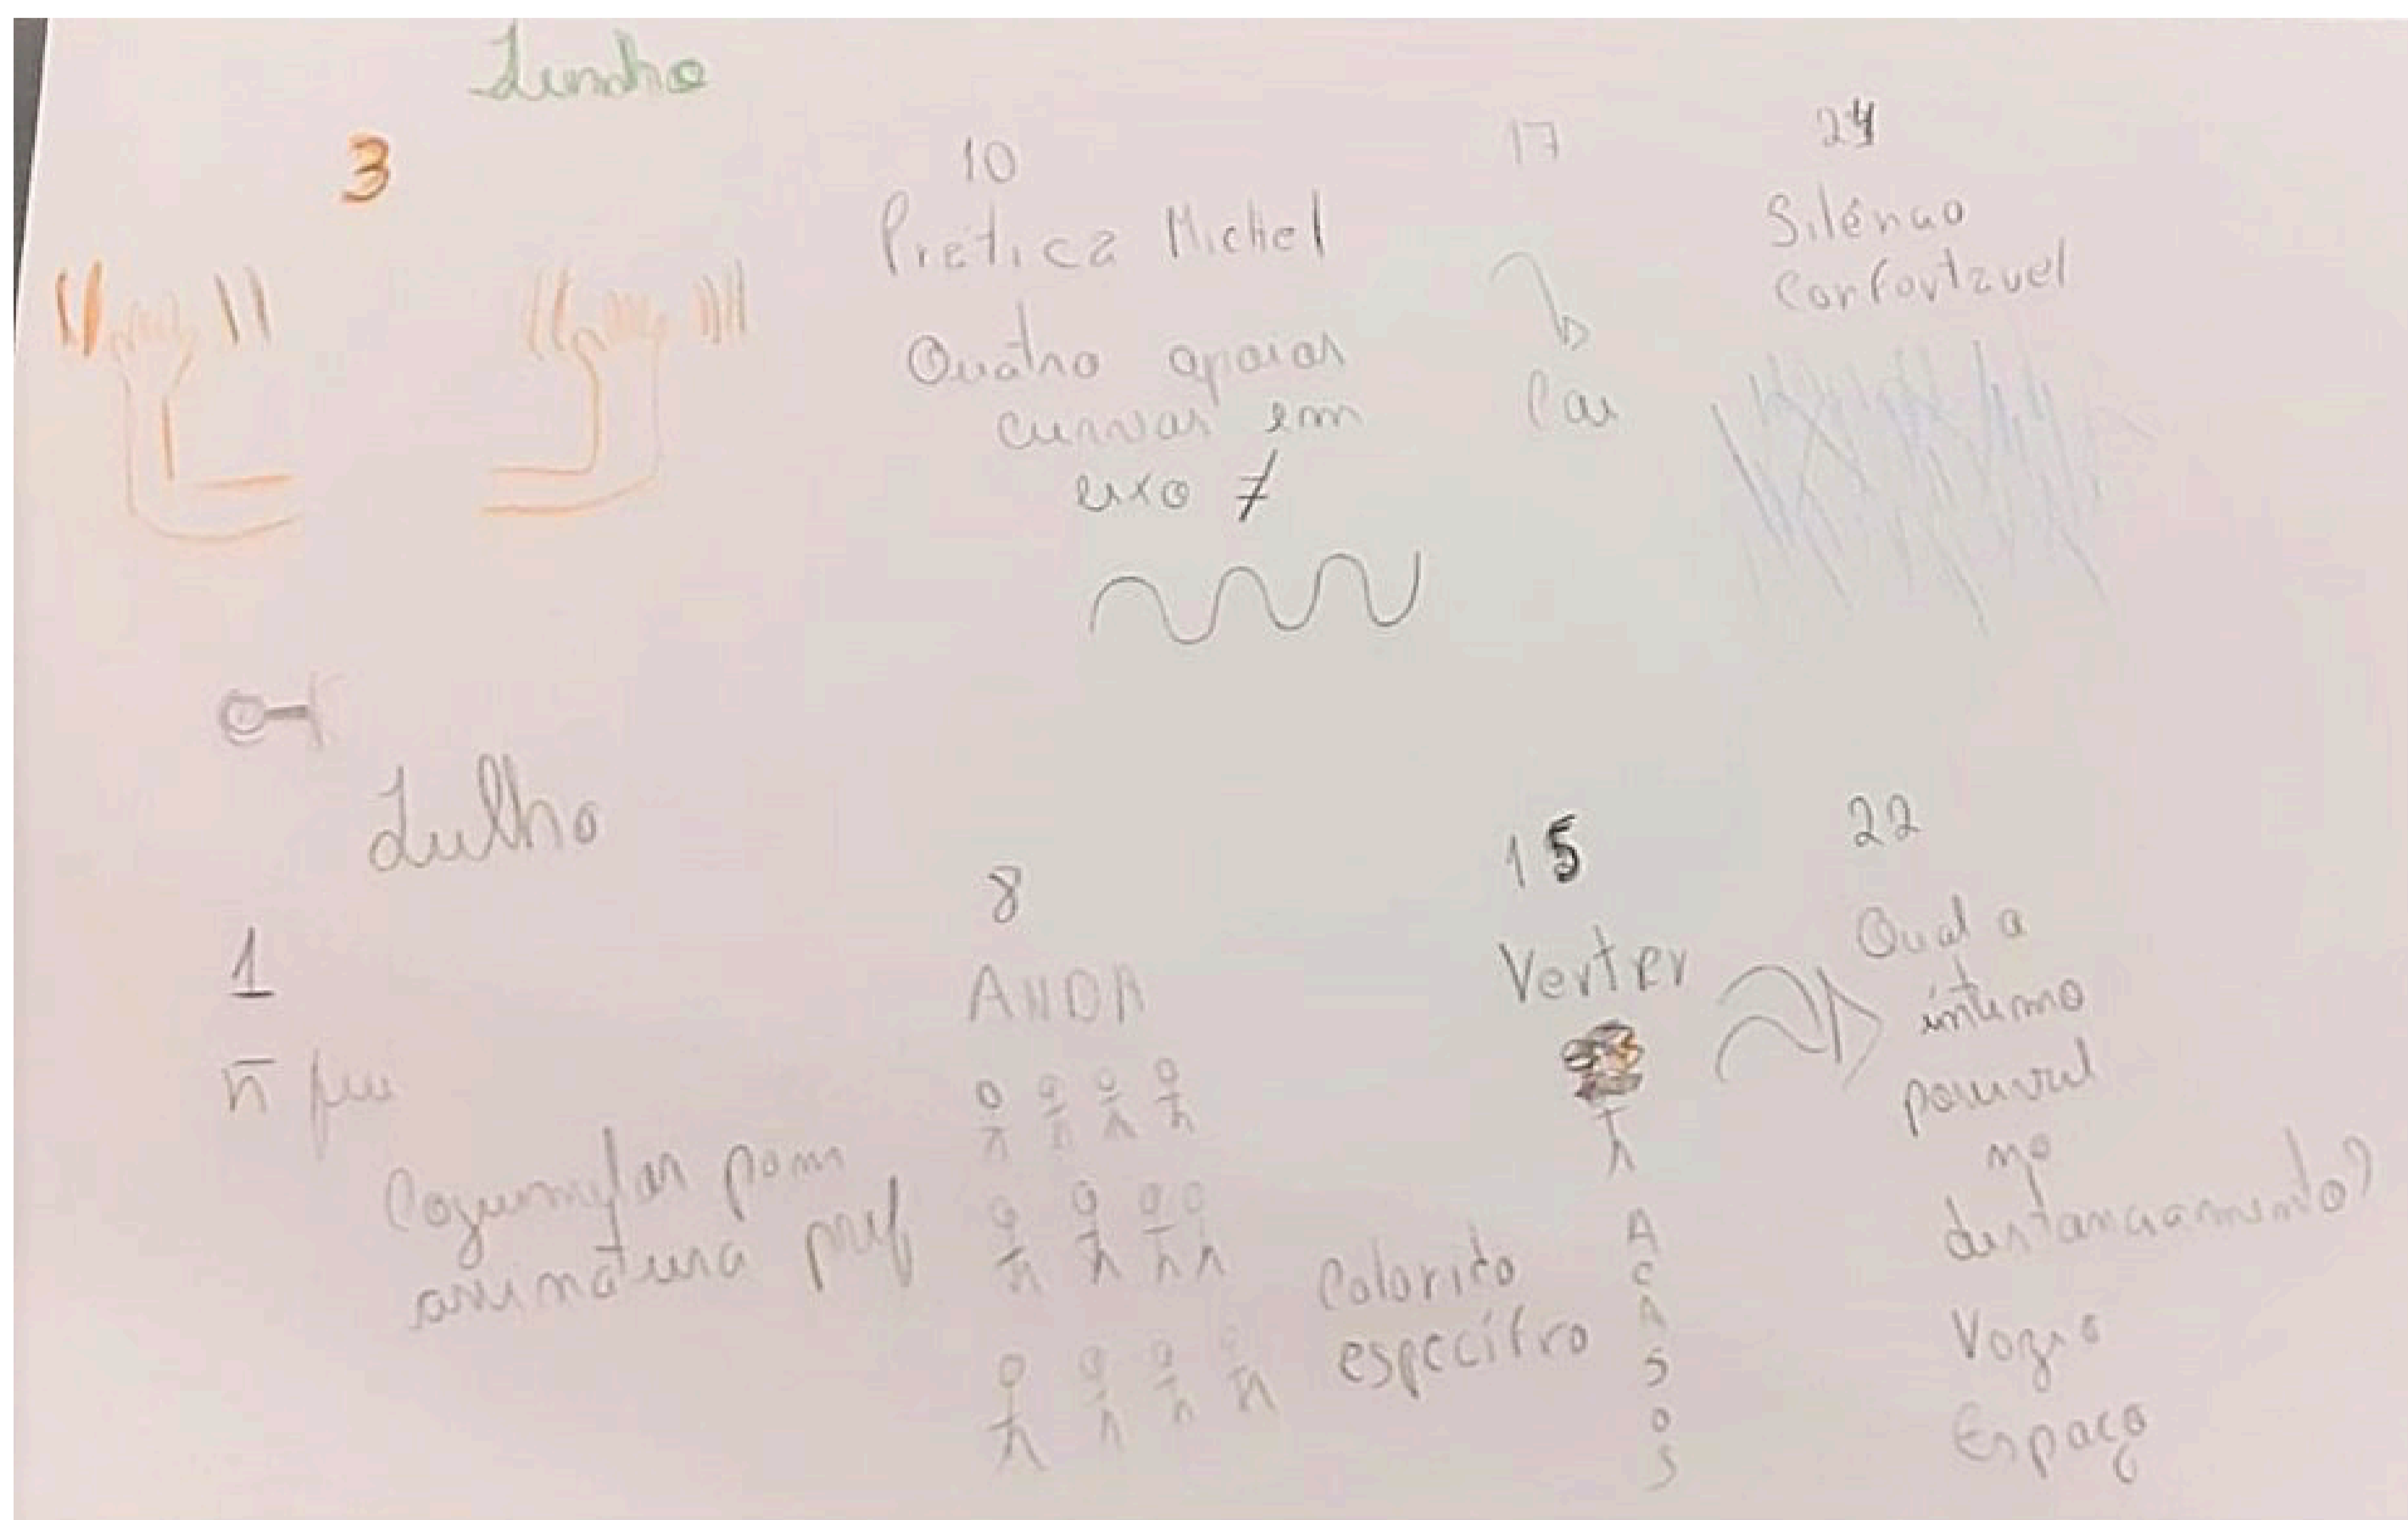 Junho
3
10
Prática Michel
Quatro apoios
curvas em
eixo ≠
17
Cai
24
Silêncio
Confortável
Julho
1
ñ fui
Cogumelar com
assinatura prof
8
ANDA
15
Verter
Colorido
específico
A
C
A
S
O
S
22
Qual a
íntimo
possível
no
distanciamento?
Vazio
Espaço